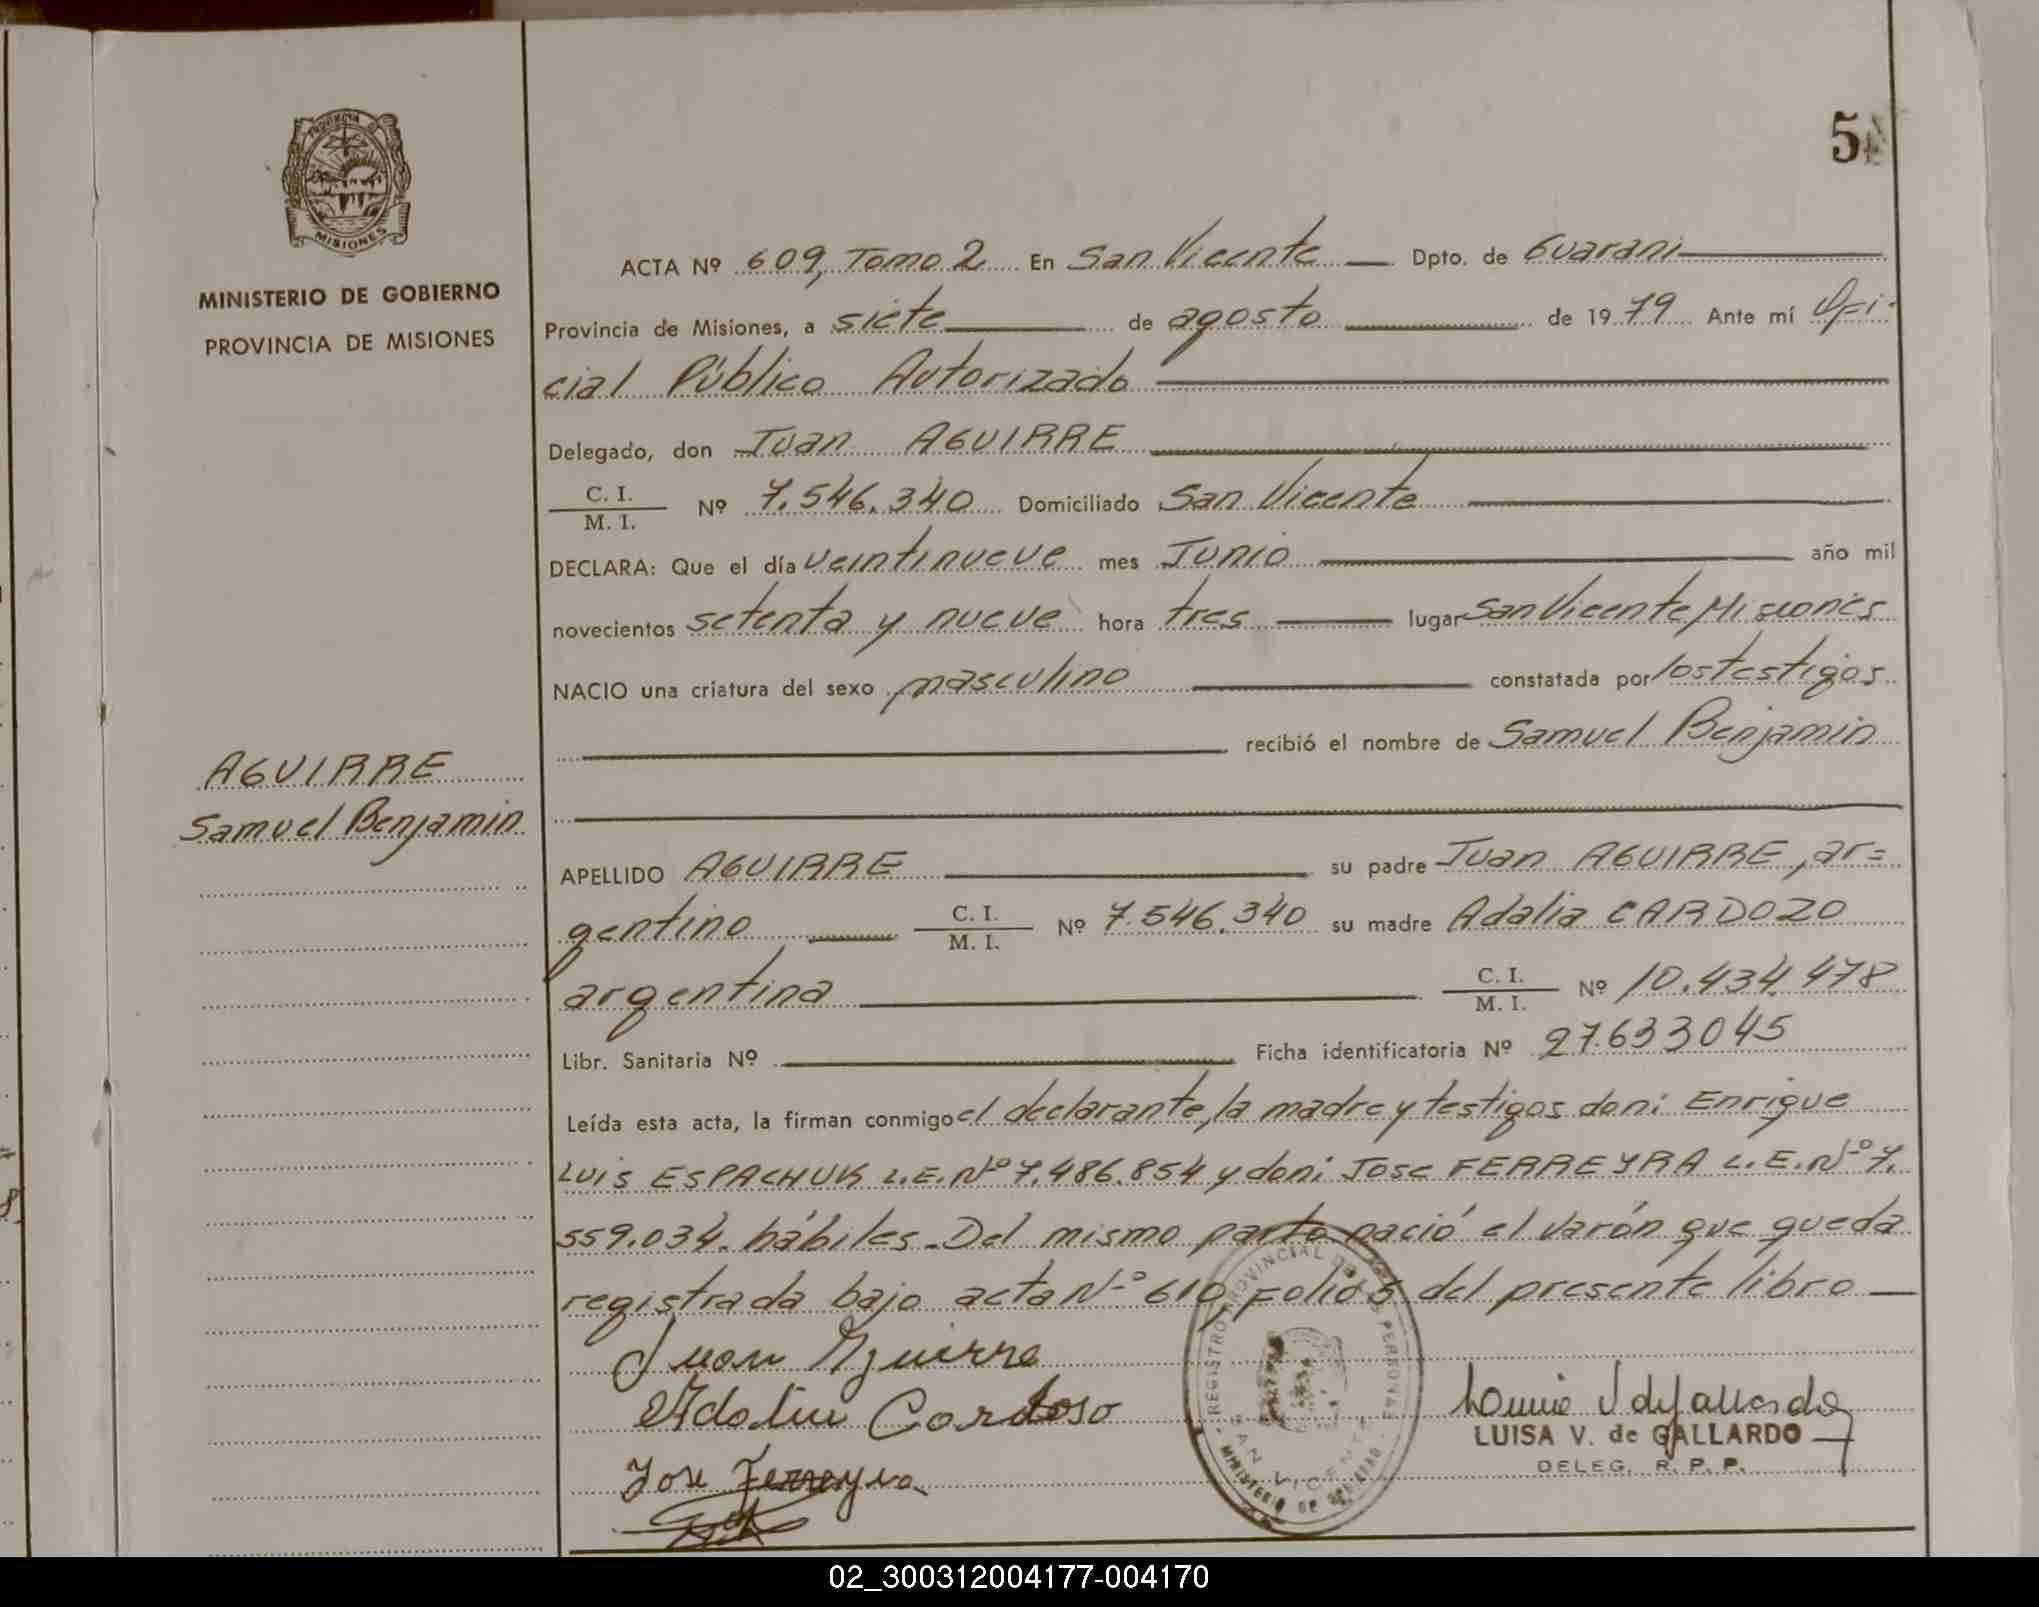 5
PROVINCIA DE
MISIONES
MINISTERIO DE GOBIERNO
PROVINCIA DE MISIONES
ACTA Nº 609, Tomo 2 En San Vicente Dpto. de Guarani
Provincia de Misiones, a siete de agosto de 1979 Ante mí Ofi-
cial Público Autorizado
Delegado, don Juan AGUIRRE
C. I.
M. I. Nº 7.546.340 Domiciliado San Vicente
DECLARA: Que el día veintinueve mes Junio año mil
novecientos setenta y nueve hora tres lugar San Vicente Misiones
NACIO una criatura del sexo masculino constatada por los testigos
recibió el nombre de Samuel Benjamin
AGUIRRE
Samuel Benjamin
APELLIDO AGUIRRE su padre Juan AGUIRRE, ar=
gentino C. I. M. I. Nº 7.546.340 su madre Adalia CARDOZO
argentina C. I. M. I. Nº 10.434.478
Libr. Sanitaria Nº Ficha identificatoria Nº 27.633045
Leída esta acta, la firman conmigo el declarante, la madre y testigos don: Enrique
Luis ESPACHUK L.E.Nº 7.486.854 y don: Jose FERREYRA L.E.Nº 7.
559.034. hábiles. Del mismo parto nació el varón que queda
registrada bajo acta Nº 610, Folio 5 del presente libro
Juan Aguirre
Adalia Cardoso
Jose Ferreyra
REGISTRO PROVINCIAL DE LAS PERSONAS
SAN VICENTE
MINISTERIO DE GOBIERNO
LUISA V. de GALLARDO
DELEG. R. P. P.
02_300312004177-004170